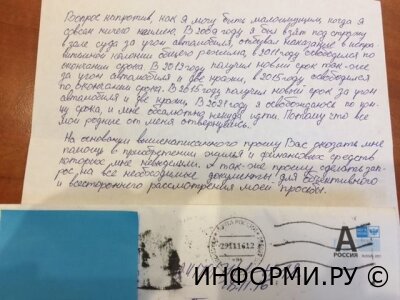 Вопрос напротив, как я могу быть малоимущим когда я
совсем ничего неимею. В 2009 году я был взят под стражу
в зале суда за угон автомобиля, отбывал наказание в испра-
вительной колонии общего режима, в 2011 году освободился по
окончании срока. В 2013 году получил новый срок так-же
за угон автомобиля и две кражи, в 2015 году освободился
по окончанию срока. В 2015 году получил новый срок за угон
автомобиля и две кражи. В 2021 году я освобождаюсь по кон-
цу срока, и мне абсалютно некуда идти. Потому что все
мои родные от меня отвернулись.
На основании вышенаписанного прошу Вас оказать мне
помощь в приобретении жилья и финансовых средств
которых мне невыделили. А так-же прошу сделать зап-
рос на все необходимые документы для объективного
и всестороннего рассмотрения моей просьбы.
291116 12
А
РОССИЯ
ИНФОРМИ.РУ ©